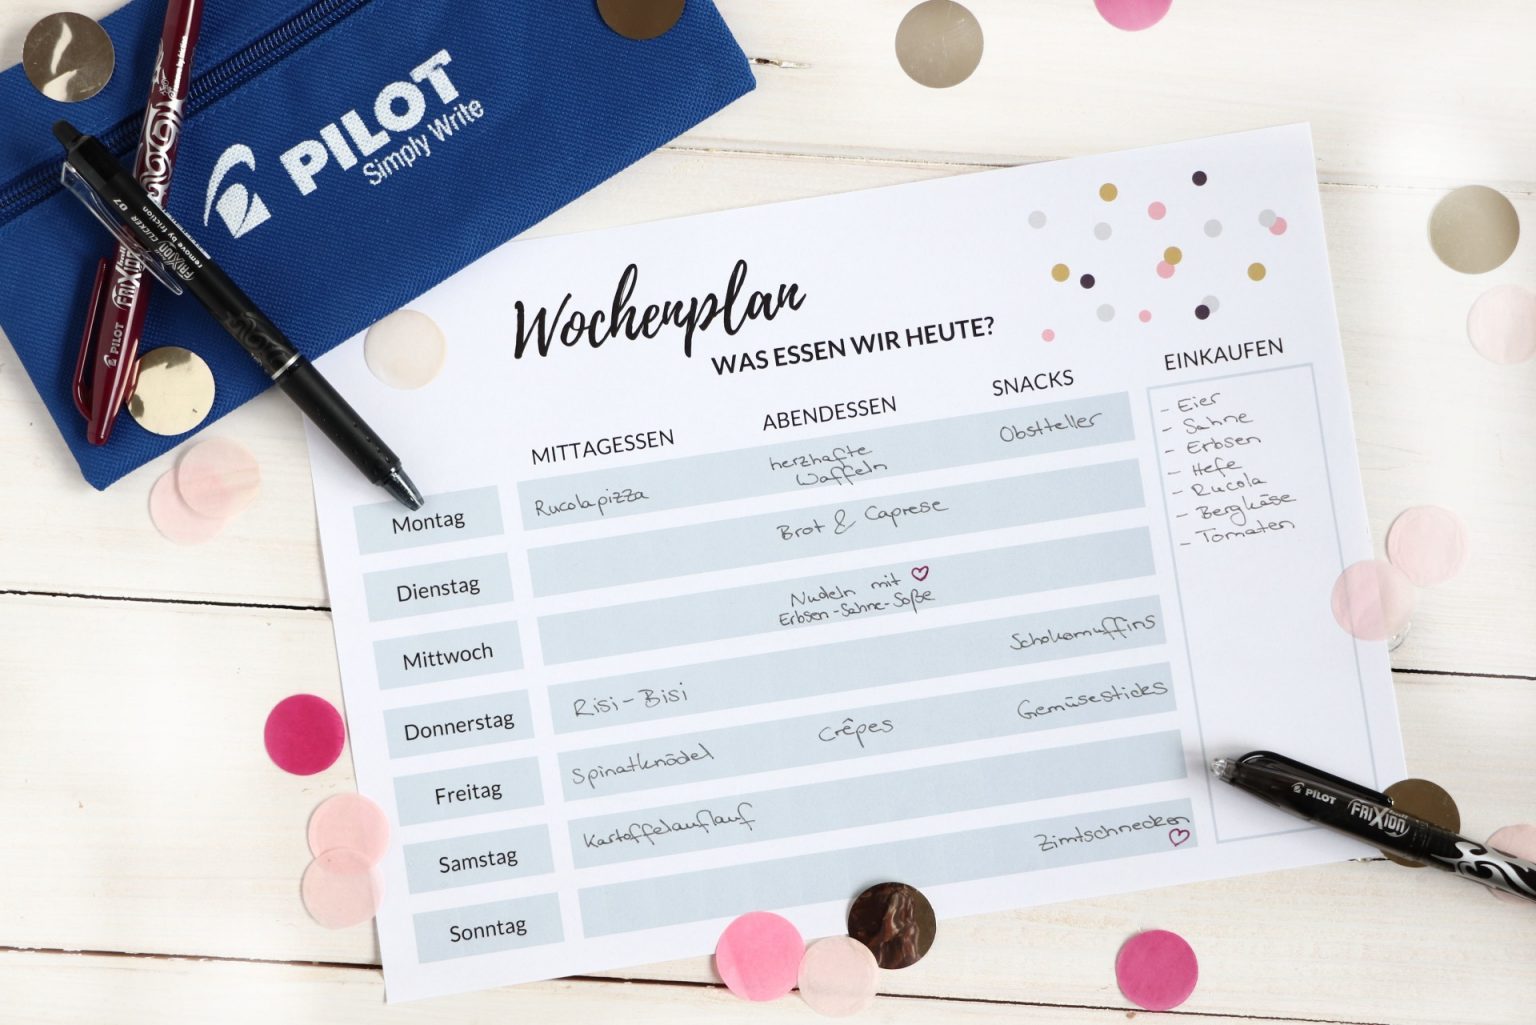 PILOT
Simply Write
FRIXION
PILOT
FRIXION CLICKER 07
remove by friction
Wochenplan
WAS ESSEN WIR HEUTE?
MITTAGESSEN
ABENDESSEN
SNACKS
EINKAUFEN
Montag
Rucolapizza
herzhafte
Waffeln
Obstteller
Dienstag
Brot & Caprese
Mittwoch
Nudeln mit ♡
Erbsen-Sahne-Soße
Donnerstag
Risi-Bisi
Schokomuffins
Freitag
Spinatknödel
Crêpes
Gemüsesticks
Samstag
Kartoffelauflauf
Sonntag
Zimtschnecken
♡
- Eier
- Sahne
- Erbsen
- Hefe
- Rucola
- Bergkäse
- Tomaten
PILOT FRIXION